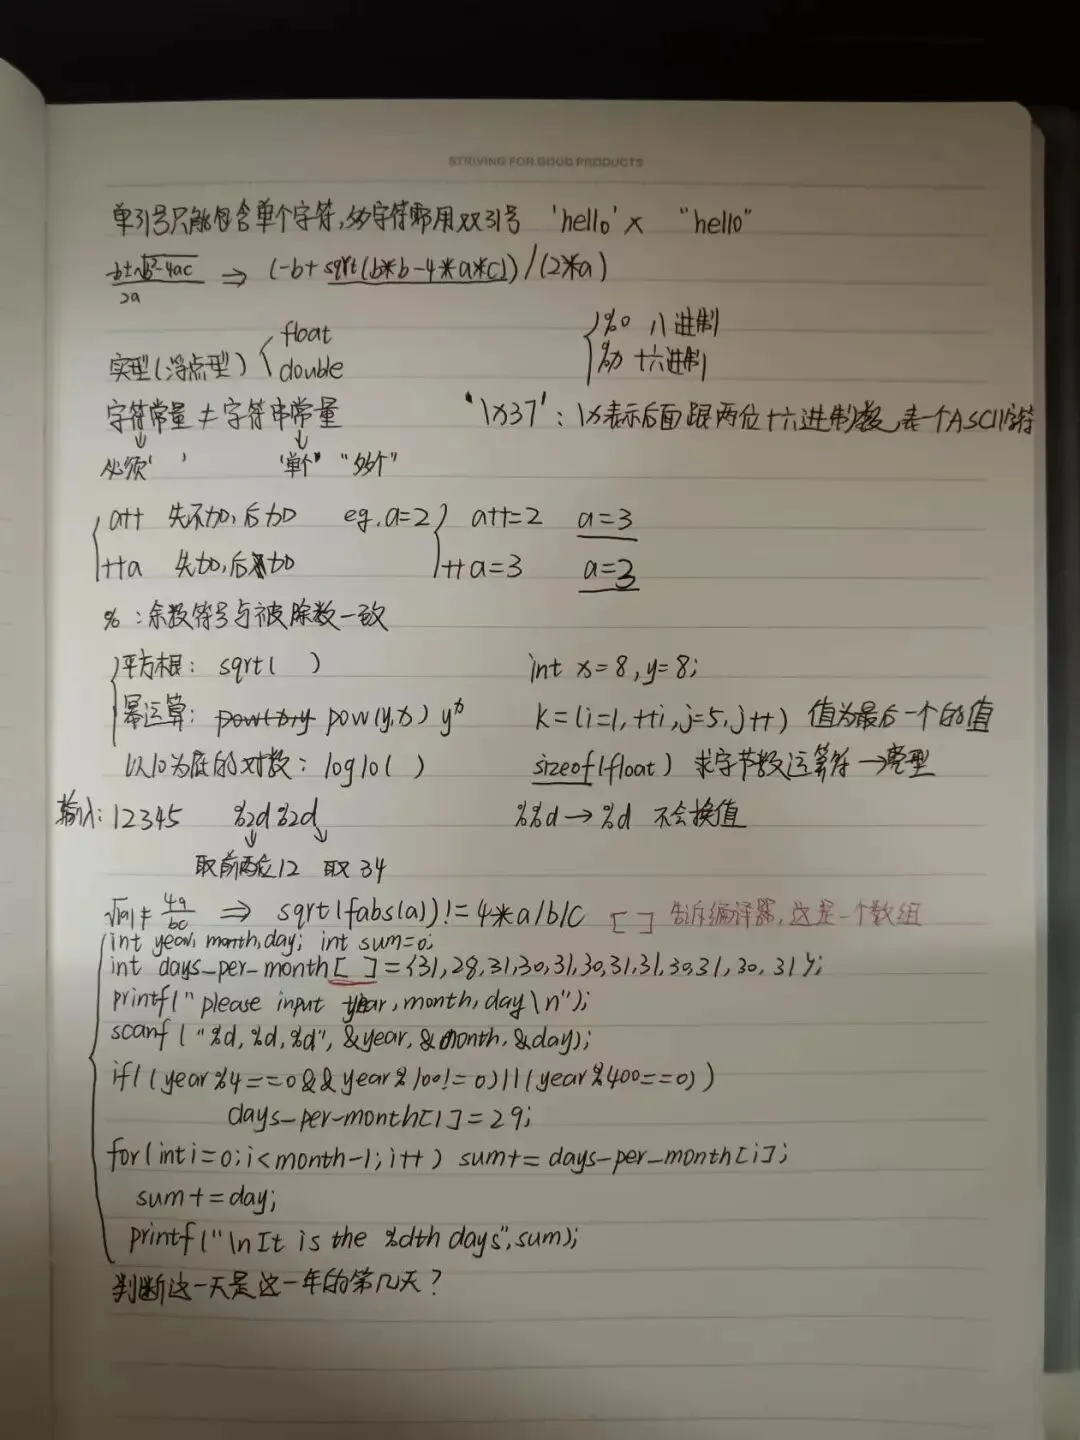 STRIVING FOR GOOD PRODUCTS
单引号只能包含单个字符,多字符那用双引号 'hello' × "hello"
-b±√b²-4ac / 2a ⇒ (-b+sqrt(b*b-4*a*c))/(2*a)
实型(浮点型) { float double
{ %o 八进制
%x 十六进制
字符常量 ≠ 字符串常量
'\x37': \x表示后面跟两位十六进制数,表一个ASCII字符
必须' ' '单个' "多个"
{ a++ 先不加,后加 eg.a=2 } a++=2 a=3
++a 先加,后不加 ++a=3 a=3
% :余数符号与被除数一致
{ 平方根: sqrt( )
幂运算: pow(x,y pow(y,x) yˣ
以10为底的对数: log10( )
int x=8,y=8;
k=(i=1,++i,j=5,j++) 值为最后一个的值
sizeof(float) 求字节数运算符→类型
输入: 12345 %2d%2d
%%d→%d 不会换值
取前两位12 取34
√|a| ≠ 4a/bc ⇒ sqrt(fabs(a))!=4*a/b/c [ ] 告诉编译器,这是一个数组
int year, month,day; int sum=0;
int days_per_month[ ]={31,28,31,30,31,30,31,31,30,31,30,31};
printf("please input year,month,day\n");
scanf("%d,%d,%d",&year,&month,&day);
if((year%4==0&&year%100!=0)||(year%400==0))
days_per-month[1]=29;
for(int i=0;i<month-1;i++) sum+=days-per_month[i];
sum+=day;
printf("\nIt is the %dth days",sum);
判断这一天是这一年的第几天?